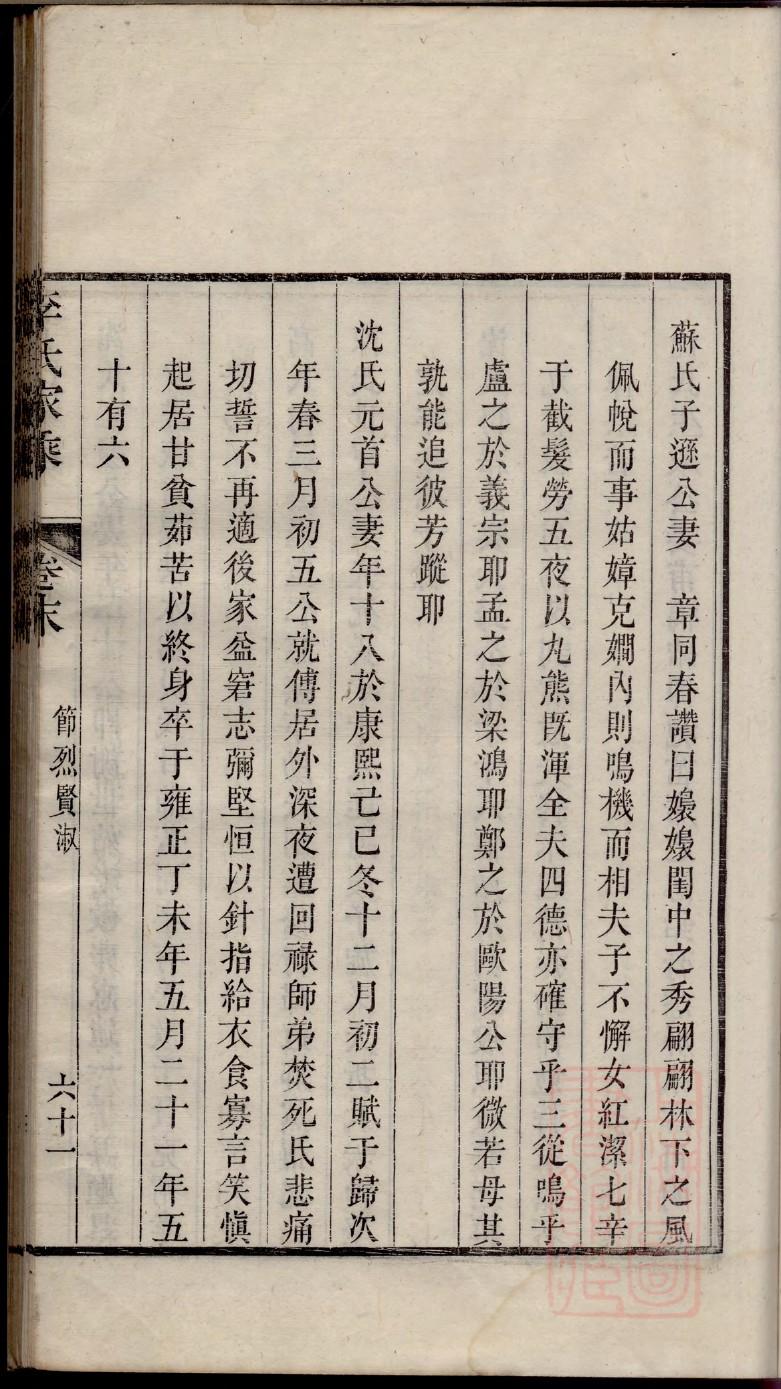 蘇氏子遜公妻　章同春讚曰嬝嬝閨中之秀翩翩林下之風
佩帨而事姑嫜克嫻內則鳴機而相夫子不懈女紅潔七辛
于截髮勞五夜以丸熊既渾全夫四德亦確守乎三從嗚乎
盧之於義宗耶孟之於梁鴻耶鄭之於歐陽公耶微若母其
孰能追彼芳蹤耶
沈氏元首公妻年十八於康熙己巳冬十二月初二賦于歸次
年春三月初五公就傅居外深夜遭回祿師弟焚死氏悲痛
切誓不再適後家益窘志彌堅恒以針指給衣食寡言笑慎
起居甘貧茹苦以終身卒于雍正丁未年五月二十一年五
十有六
李氏家乘　卷末　節烈賢淑　六十一